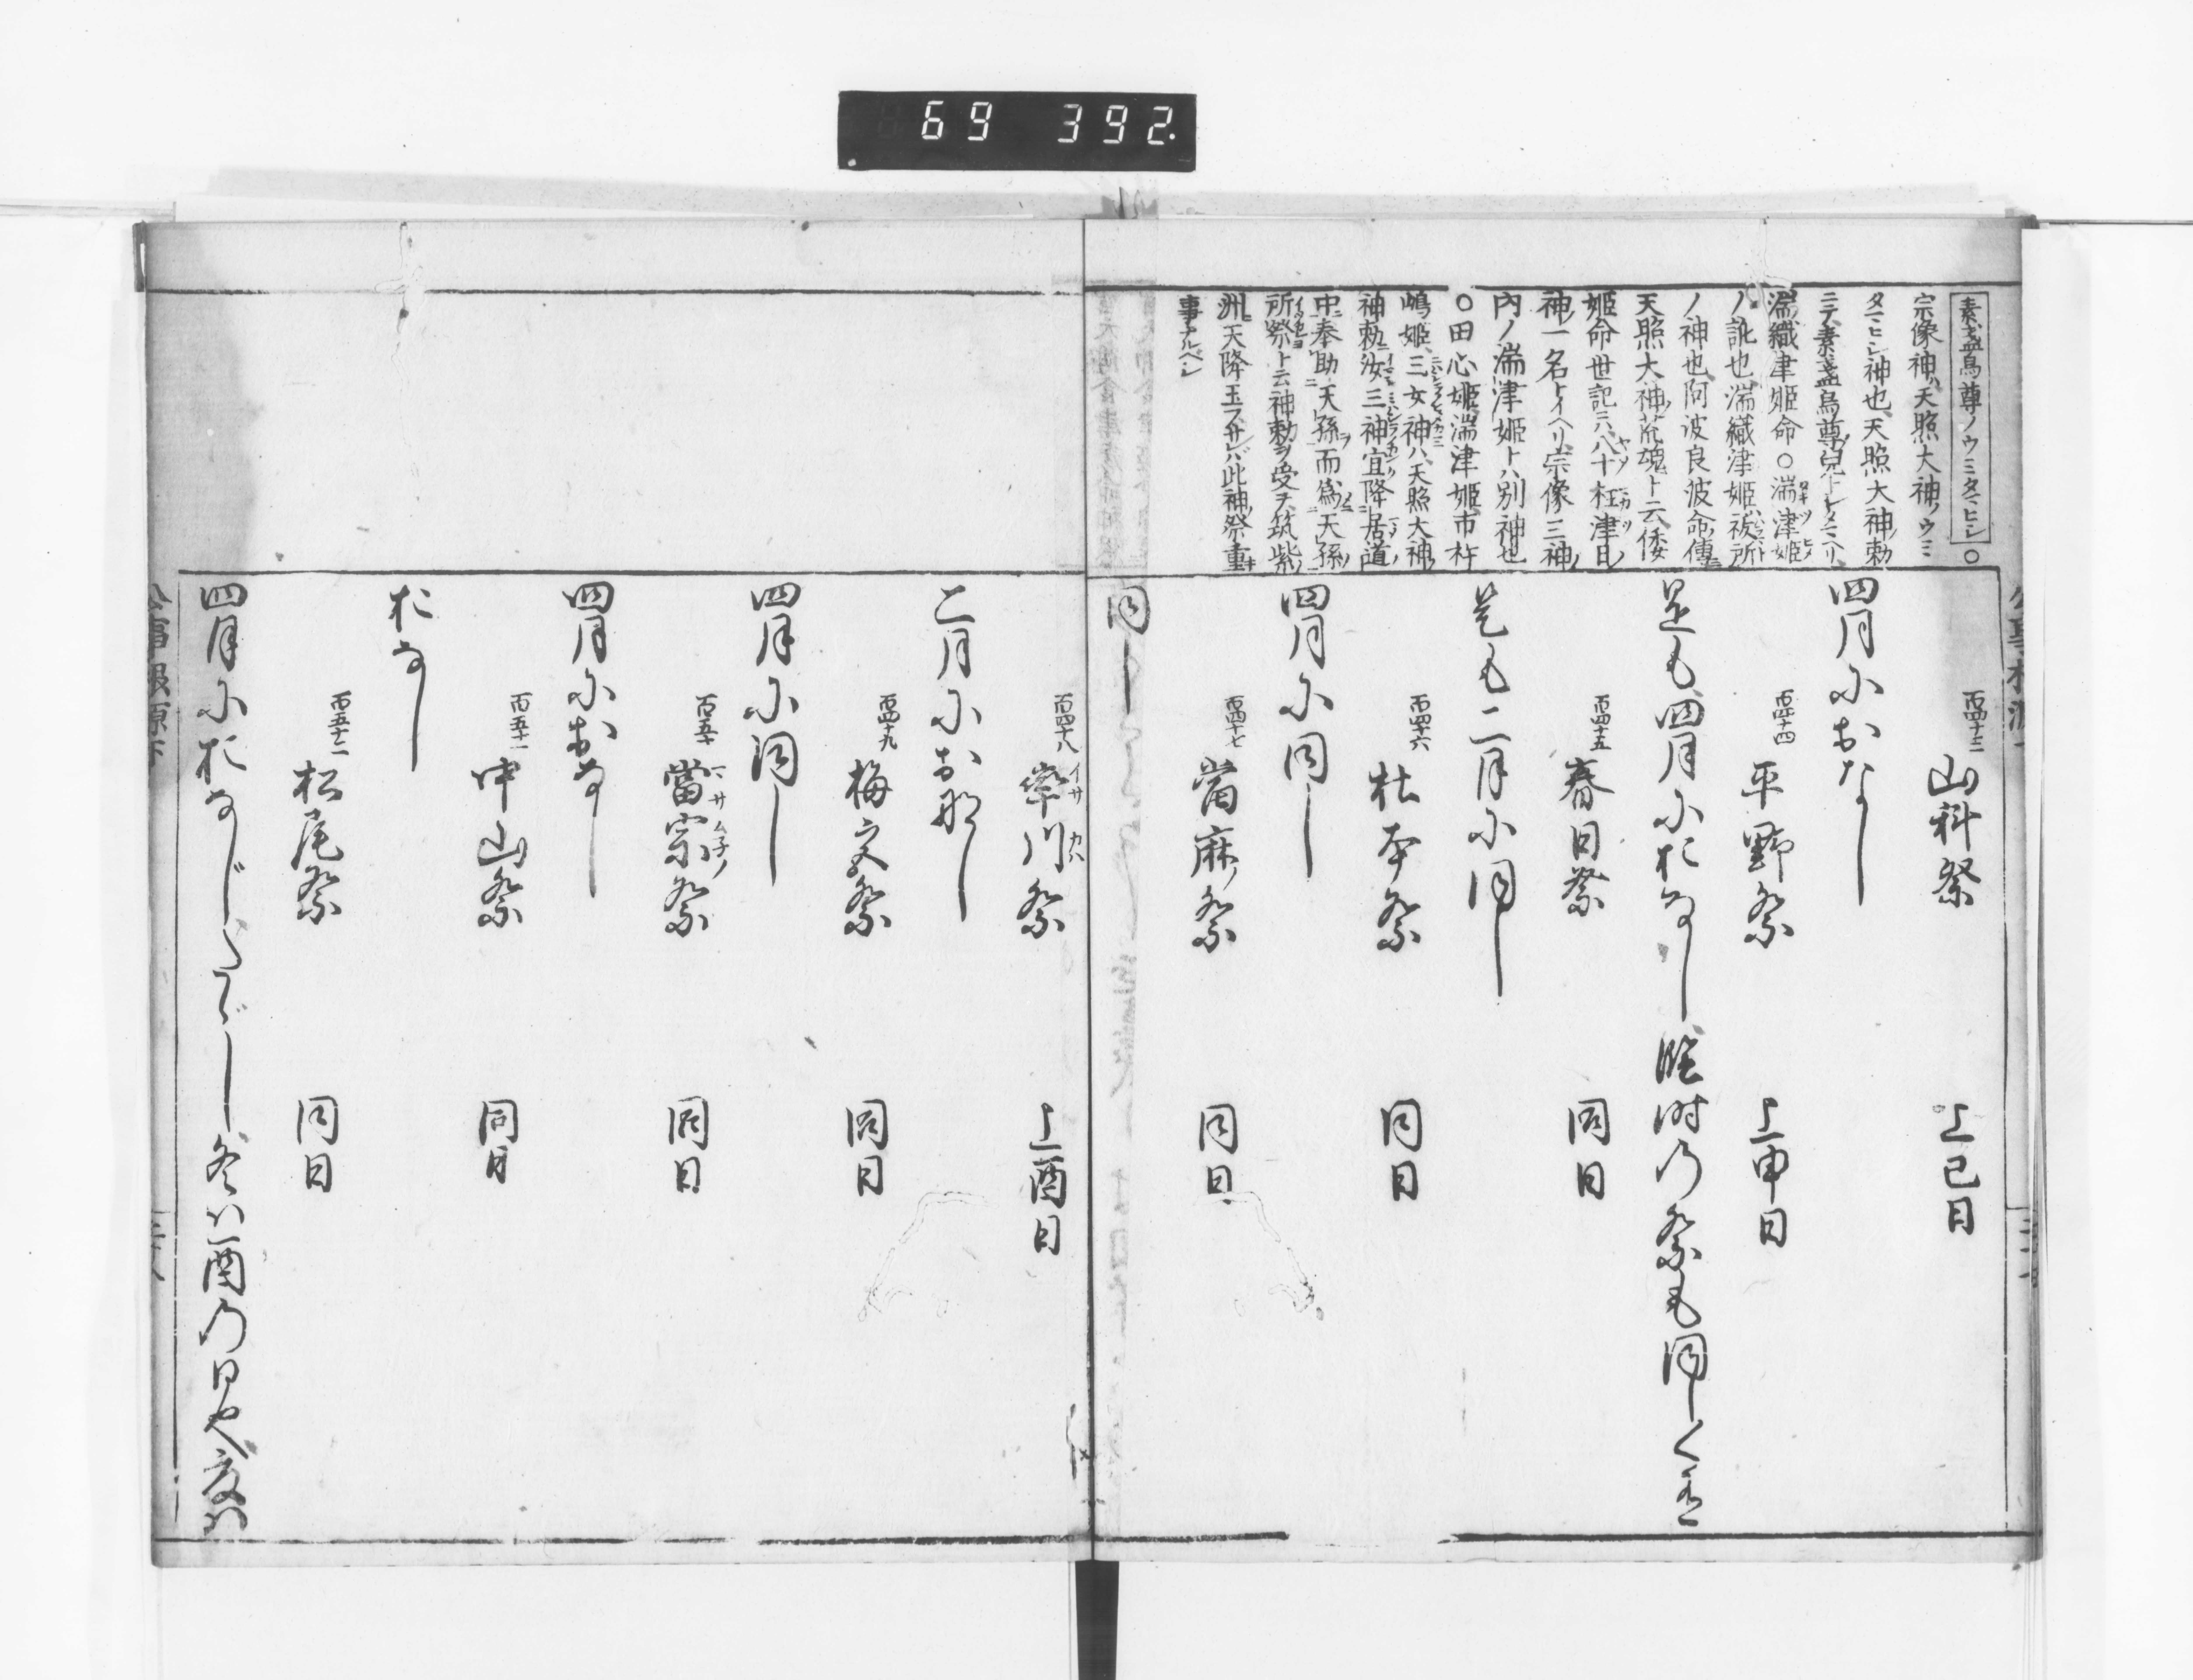 69 392.
素盞烏尊ノウミタマヒシ○
宗像神、天照大神ノウミ
タマヒシ神也、天照大神勅
ニテ素盞烏尊ノ兒トシタマヘリ、
湍織津姫命○湍津姫
ノ訛也湍織津姫ハ祓所
ノ神也、阿波良波命傳ニ
天照大神ノ荒魂ト云、倭
姫命世記ニハ八十枉津日ノ
神ノ一名トイヘリ、宗像三神ノ
内ノ湍津姫トハ別神也
○田心姫、湍津姫、市杵
嶋姫、三女神ハ、天照大神ノ
神勅ニ汝三神宜降居道
中奉助天孫而為天孫
所祭ト云神勅ヲ受テ、筑紫ノ
洲ニ天降玉フ、サレバ此神ノ祭重キ
事ナルベシ
百四十三 山科祭 上巳日
四月におなし
百四十四 平野祭 上申日
是も四月におなし臨時の祭も同しく有
百四十五 春日祭 同日
是も二月に同し
百四十六 杜本祭 同日
四月に同し
百四十七 當麻祭 同日
同し
百四十八 率川祭 上酉日
イサ カハ
二月におなし
百四十九 梅宮祭 同日
四月に同し
百五十 當宗祭 同日
四月におなし
百五十一 中山祭 同日
おなし
百五十二 松尾祭 同日
四月におなじ、たゞし冬は酉の日也、夏は